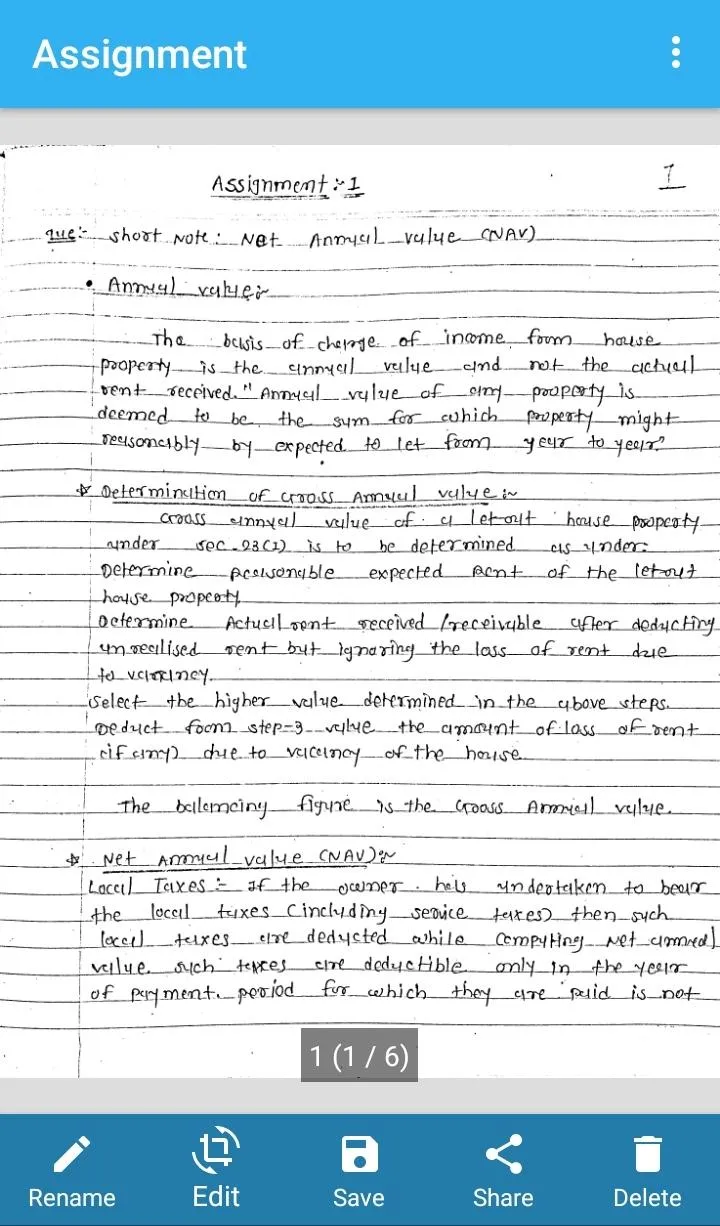 Assignment
Assignment :- 1
1
que:- short note: Net Annual value (NAV)
• Annual value:-
The basis of charge of income from house
property is the annual value and not the actual
rent received. "Annual value of any property is
deemed to be the sum for which property might
reasonably by expected to let from year to year."
Determination of Gross Annual value :-
Gross annual value of a letout house property
under sec-23(1) is to be determined as under:
Determine Reasonable expected Rent of the letout
house property
Determine Actual rent received /receivable after deducting
unrealised rent but ignoring the loss of rent due
to vacancy.
select the higher value determined in the above steps.
Deduct from step-3 value the amount of loss of rent
(if any) due to vacancy of the house
The balancing figure is the Gross Annual value.
Net Annual value (NAV):-
Local Taxes:- If the owner has undertaken to bear
the local taxes (including service taxes) then such
local taxes are deducted while computing Net annual
value. such taxes are deductible only in the year
of payment. period for which they are paid is not
1 (1 / 6)
Rename Edit Save Share Delete